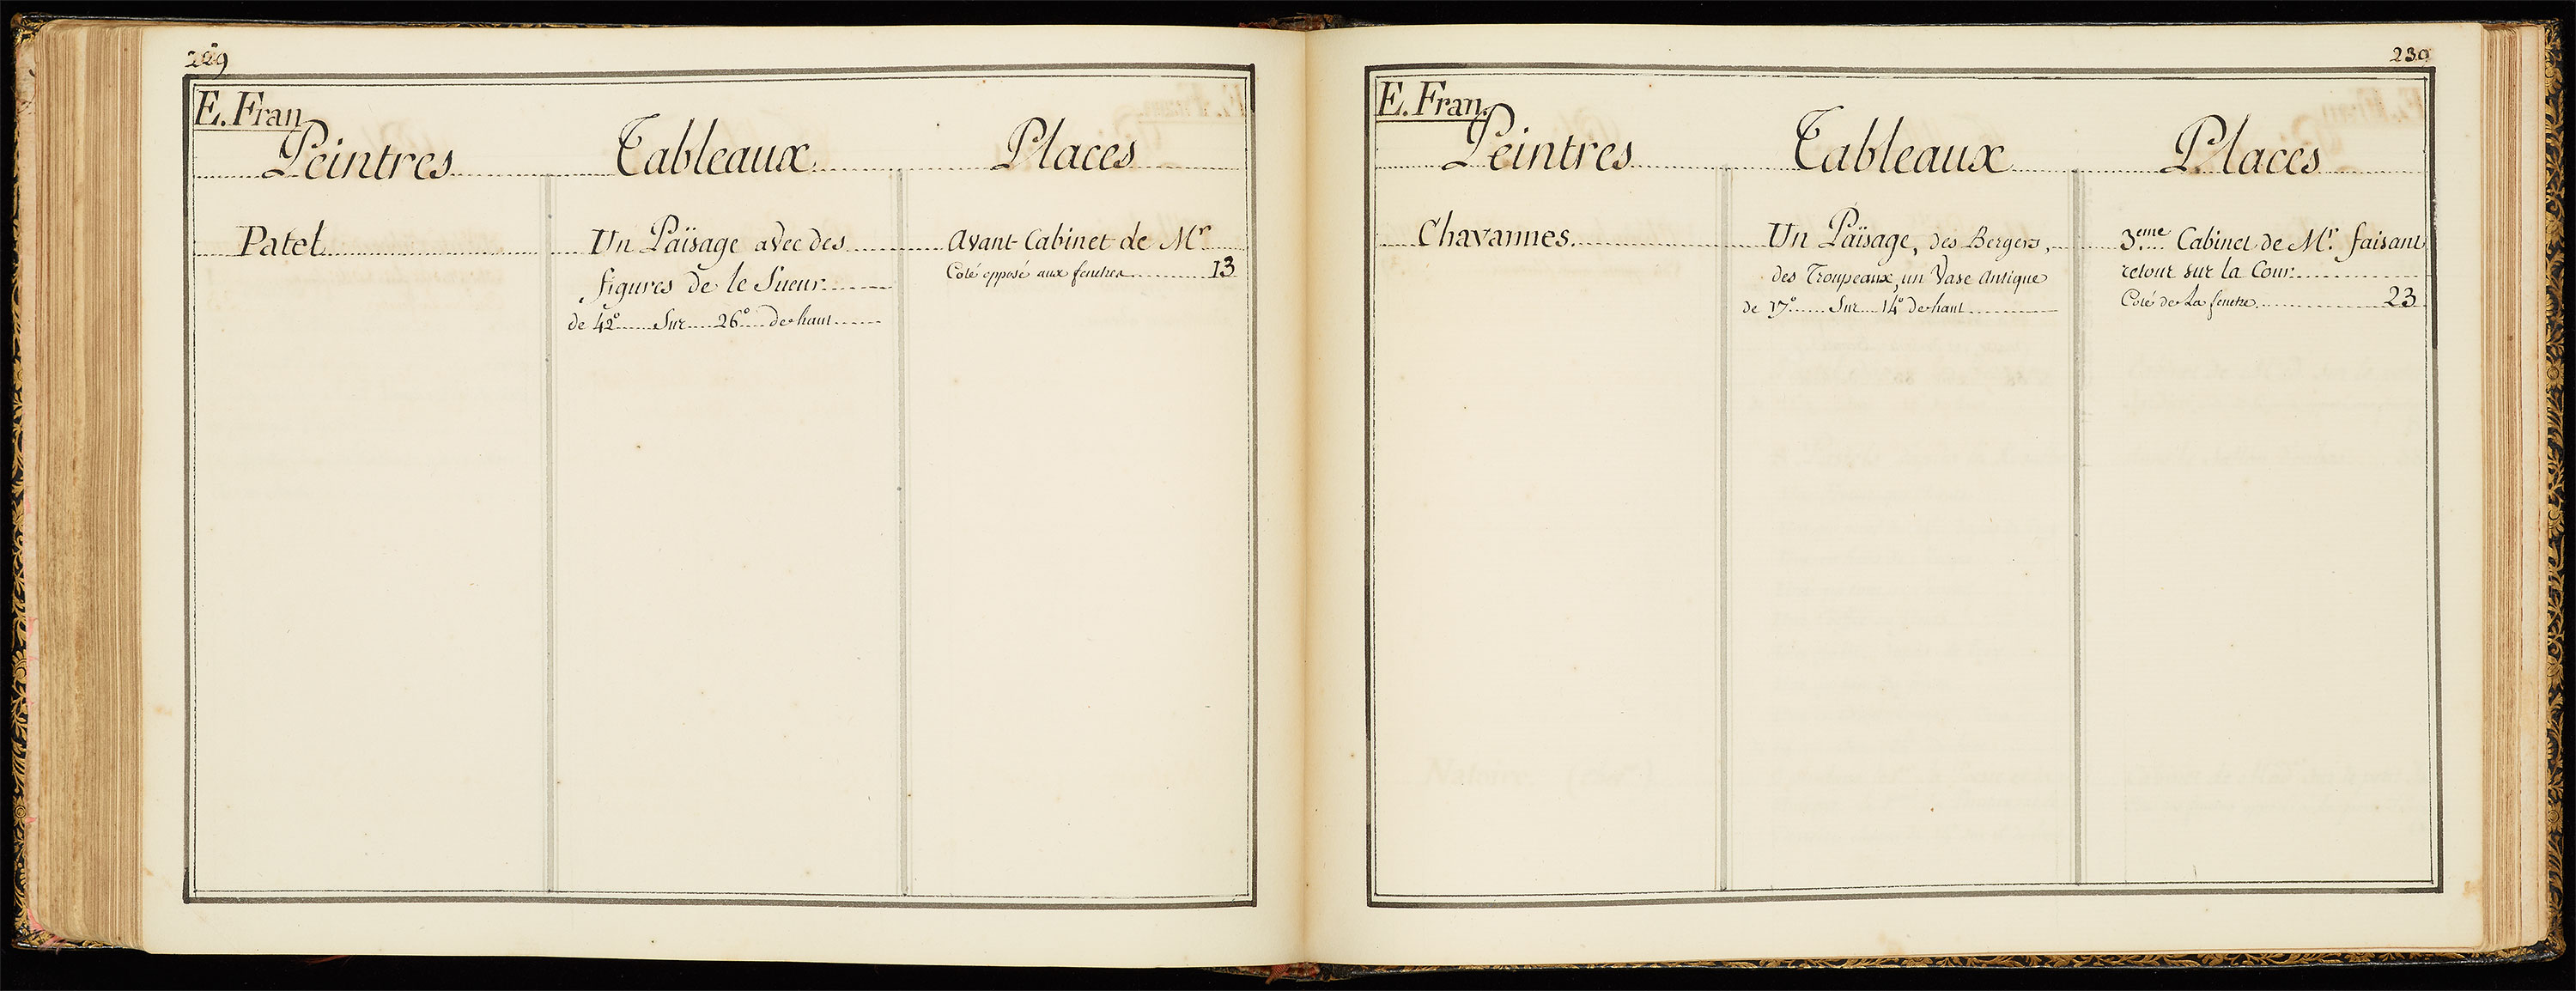 229
E. Fran
Peintres Tableaux Places
Patel Un Païsage avec des Avant-Cabinet de Mr
figures de le Sueur Coté opposé aux fenetres 13
de 42° Sur 26° de haut
230
E. Fran.
Peintres Tableaux Places
Chavannes. Un Païsage, des Bergers, 3.eme Cabinet de Mr. faisant
des Troupeaux, un Vase Antique retour sur la Cour.
de 17° Sur 14° de haut Coté de La fenetre 23